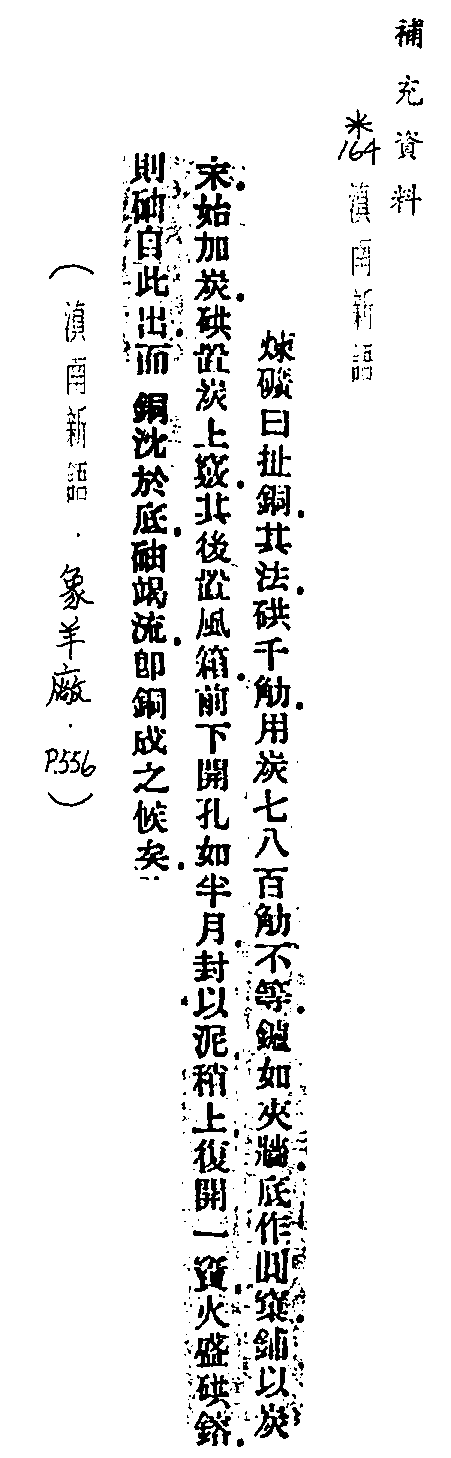 補充資料
*164 滇南新語
煉礦曰扯銅其法硔千觔用炭七八百觔不等鑪如夾牆底作凹窠鋪以炭
末始加炭硔置炭上竅其後置風箱前下開孔如半月封以泥稍上復開一竇火盛硔鎔
則硇自此出而銅沈於底硇竭流卽銅成之候矣
（滇南新語．象羊廠．P.556）